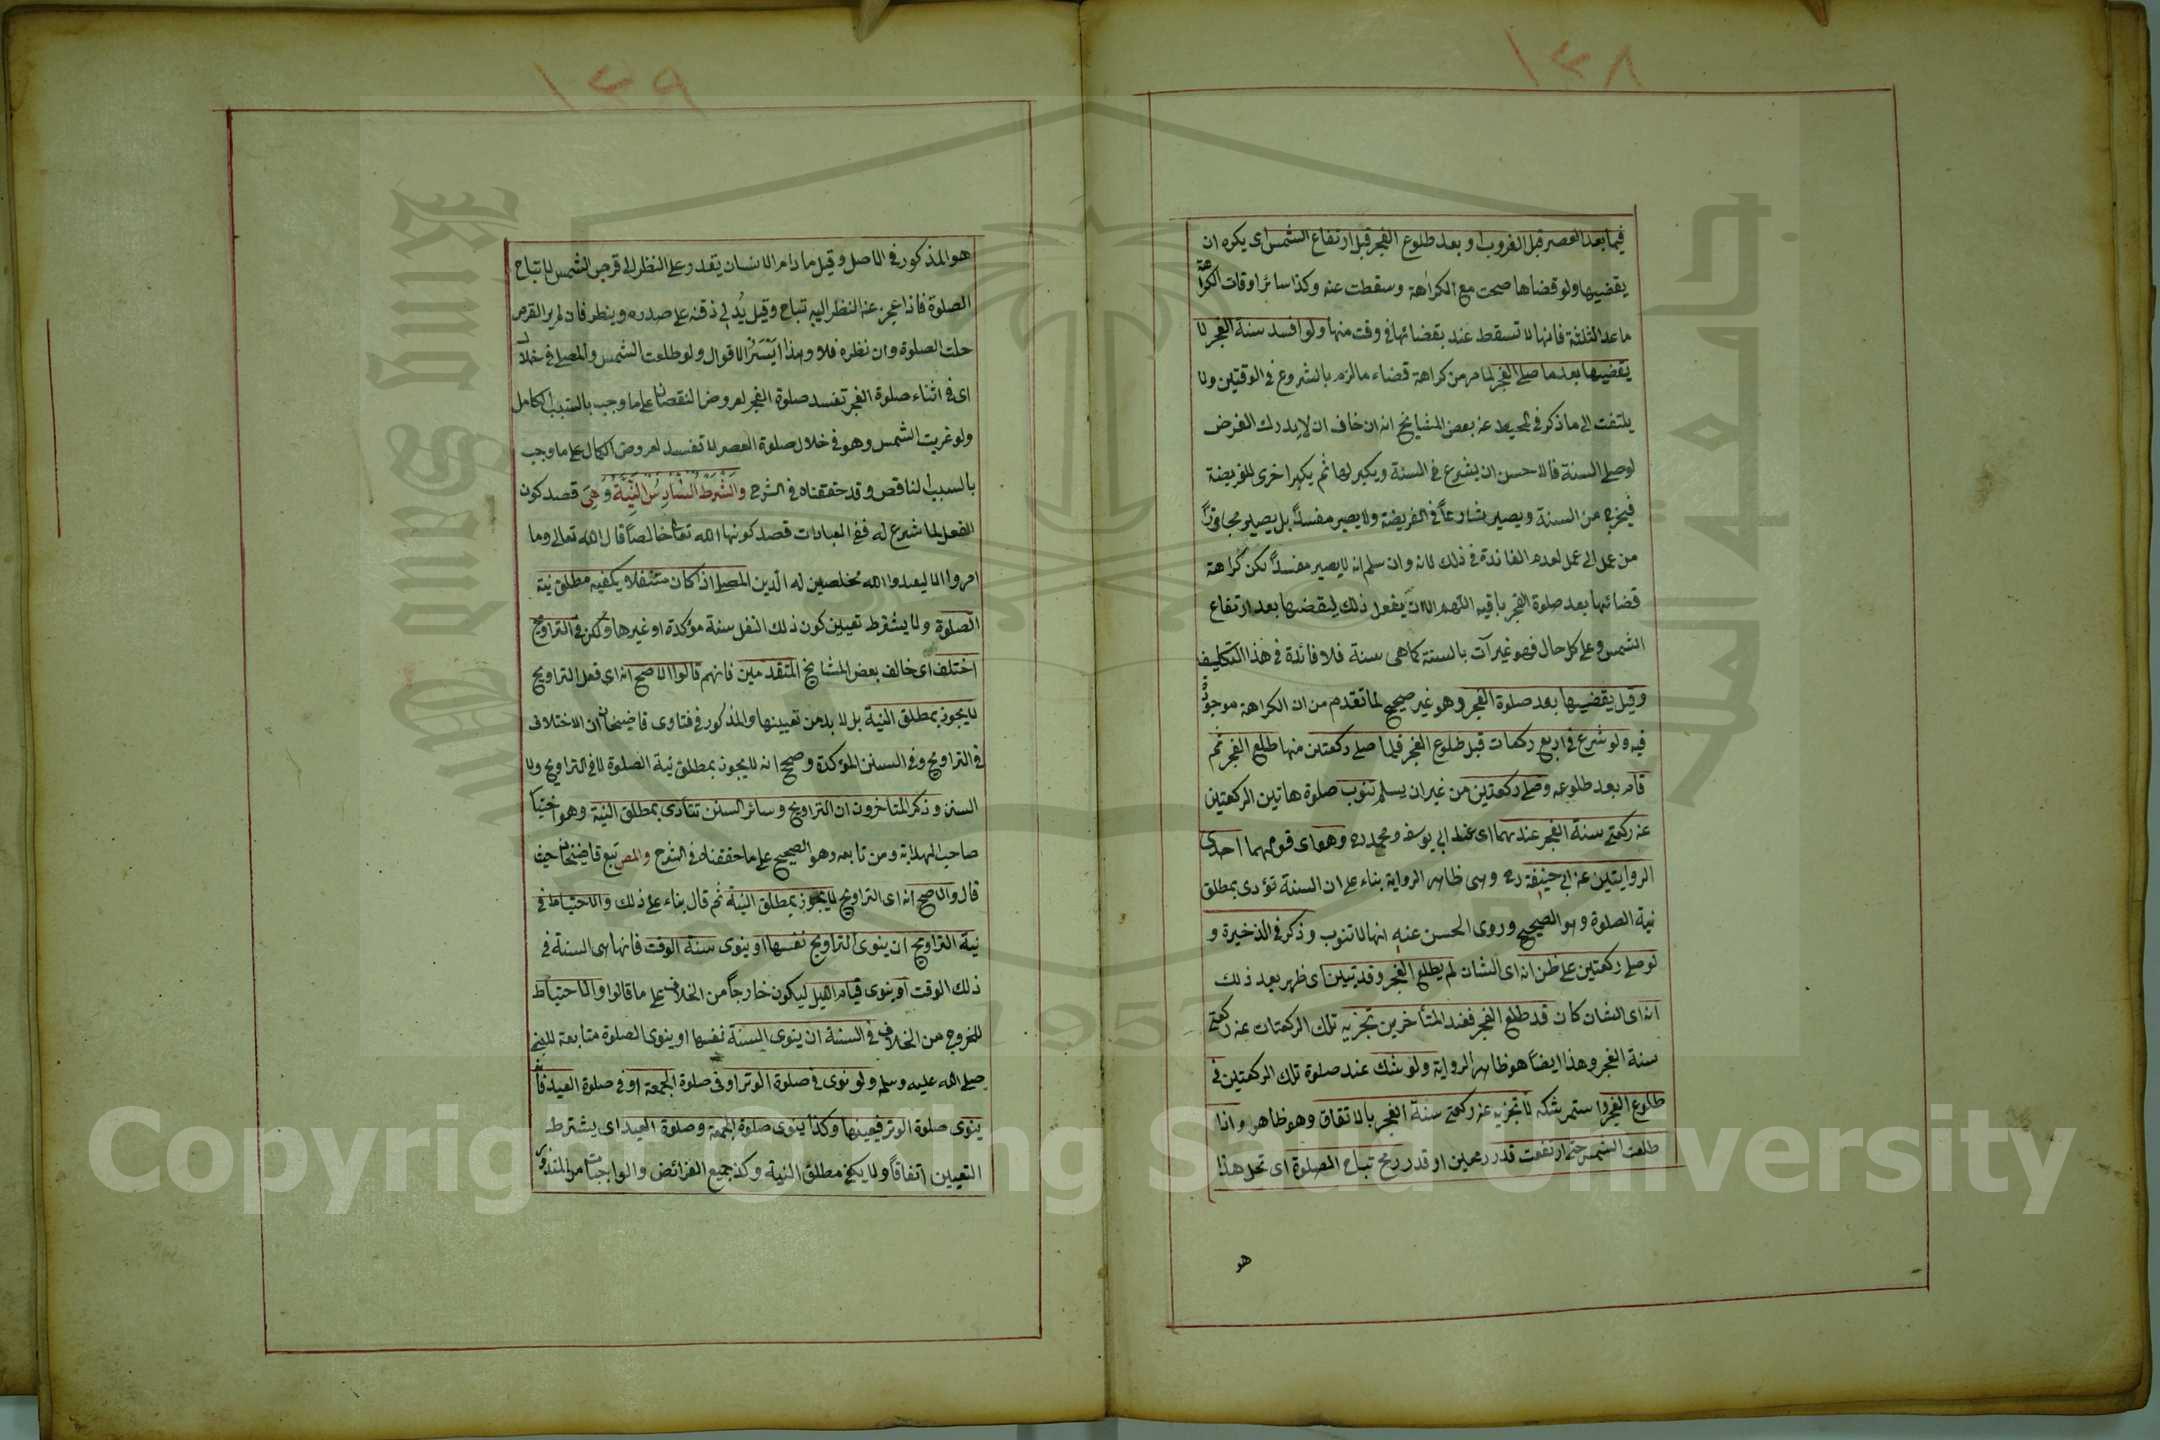 ١٣٨
فيما بعد العصر قبل الغروب او بعد طلوع الفجر قبل ارتفاع الشمس اى يكره ان
يقضيها ولو قضاها صحت مع الكراهة وسقطت عنه وكذا سائر اوقات الكراهة
ما عدا الثلثة فانها لا تسقط عنه بقضائها فى وقت منها ولو افسد سنة الفجر لا
يقضيها بعد ما صلى الفجر لما مر من كراهة قضاء ما لزم بالشروع فى الوقتين ولا
يلتفت الى ما ذكر فى المحيط عن بعض المشايخ انه ان خاف ان لا يدرك الفرض
لو صلى السنة فالاحسن ان يشرع فى السنة ويكبر لها ثم يكبر اخرى للفريضة
فيخرج من السنة ويصير شارعاً فى الفريضة ولا يصير مفسداً بل يصير مجاوزاً
من عمل الى عمل لعدم الفائدة فى ذلك لانه وان سلم انه لا يصير مفسداً لكن كراهة
قضائها بعد صلوة الفجر باقية اللهم الا ان يفعل ذلك ليقضيها بعد ارتفاع
الشمس وعلى كل حال فهو غير آت بالسنة كما هى سنة فلا فائدة فى هذا التكليف
وقيل يقضيها بعد صلوة الفجر وهو غير صحيح لما تقدم من ان الكراهة موجودة
فيه ولو شرع فى اربع ركعات قبل طلوع الفجر فلما صلى ركعتين منها طلع الفجر ثم
قام بعد طلوعه وصلى ركعتين من غير ان يسلم تنوب صلوة هاتين الركعتين
عن ركعتى سنة الفجر عندهما اى عند ابى يوسف ومحمد رح وهو اى قولهما احدى
الروايتين عن ابى حنيفة رح وهى ظاهر الرواية بناء على ان السنة تؤدى بمطلق
نية الصلوة وهو الصحيح وروى الحسن عنه انها لا تنوب وذكر فى الذخيرة و
لو صلى ركعتين على ظن انه اى الشان لم يطلع الفجر وقد تبين اى ظهر بعد ذلك
انه اى الشان كان قد طلع الفجر فعند المتأخرين تجزيه تلك الركعتان عن ركعتى
سنة الفجر وهذا ايضاً هو ظاهر الرواية ولو شك عند صلوة تلك الركعتين فى
طلوع الفجر واستمر شكه لا تجزيه عن ركعتى سنة الفجر بالاتفاق وهو ظاهر واذا
طلعت الشمس حتى ارتفعت قدر رمحين او قدر رمح تباح الصلوة اى تحل هذا
هو
١٣٩
هو المذكور فى الاصل وقيل ما دام الانسان يقدر على النظر الى قرص الشمس لا تباح
الصلوة فاذا عجز عن النظر اليه تباح وقيل يُدلى ذقنه على صدره وينظر فان لم ير القرص
حلت الصلوة وان نظره فلا وهذا ايسر الاقوال ولو طلعت الشمس والمصلى فى خلال
اى فى اثناء صلوة الفجر تفسد صلوة الفجر لعروض النقصان على ما وجب بالسبب الكامل
ولو غربت الشمس وهو فى خلال صلوة العصر لا تفسد لعروض الكمال على ما وجب
بالسبب الناقص وقد حققناه فى الشرح وَالشَّرْطُ السَّادِسُ النِّيَّةُ وَهِىَ قصد كون
الفعل لما شرع له ففى العبادات قصد كونها لله تعالى خالصاً قال الله تعالى وما
امروا الا ليعبدوا الله مخلصين له الدين المصلى اذا كان متنفلا يكفيه مطلق نية
الصلوة ولا يشترط تعيين كون ذلك النفل سنة مؤكدة او غيرها ولكن فى التراويح
اختلف اى خالف بعض المشايخ المتقدمين فانهم قالوا الاصح انه اى فعل التراويح
لا يجوز بمطلق النية بل لا بد من تعيينها والمذكور فى فتاوى قاضيخان ان الاختلاف
فى التراويح وفى السنن المؤكدة وصحح انه لا يجوز بمطلق نية الصلوة لا فى التراويح ولا
السنن وذكر المتأخرون ان التراويح وسائر السنن تتادى بمطلق النية وهو اختيا
صاحب الهداية ومن تابعه وهو الصحيح على ما حققناه فى الشرح والمص تبع قاضيخان حيث
قال والاصح انه اى التراويح لا يجوز بمطلق النية ثم قال بناء على ذلك والاحتياط فى
نية التراويح ان ينوى التراويح نفسها او ينوى سنة الوقت فانها هى السنة فى
ذلك الوقت او ينوى قيام الليل ليكون خارجاً من الخلاف على ما قالوا والاحتياط
للخروج من الخلاف فى السنة ان ينوى السنة نفسها او ينوى الصلوة متابعة للنبى
صلى الله عليه وسلم ولو نوى فى صلوة الوتر او فى صلوة الجمعة او فى صلوة العيد فانه
ينوى صلوة الوتر فيعينها وكذا ينوى صلوة الجمعة وصلوة العيد اى يشترط
التعيين اتفاقاً ولا يكفى مطلق النية وكذا جميع الفرائض والواجبات من المنذور
Copyright © King Saud University
King Saud University
جامعة الملك سعود
1957